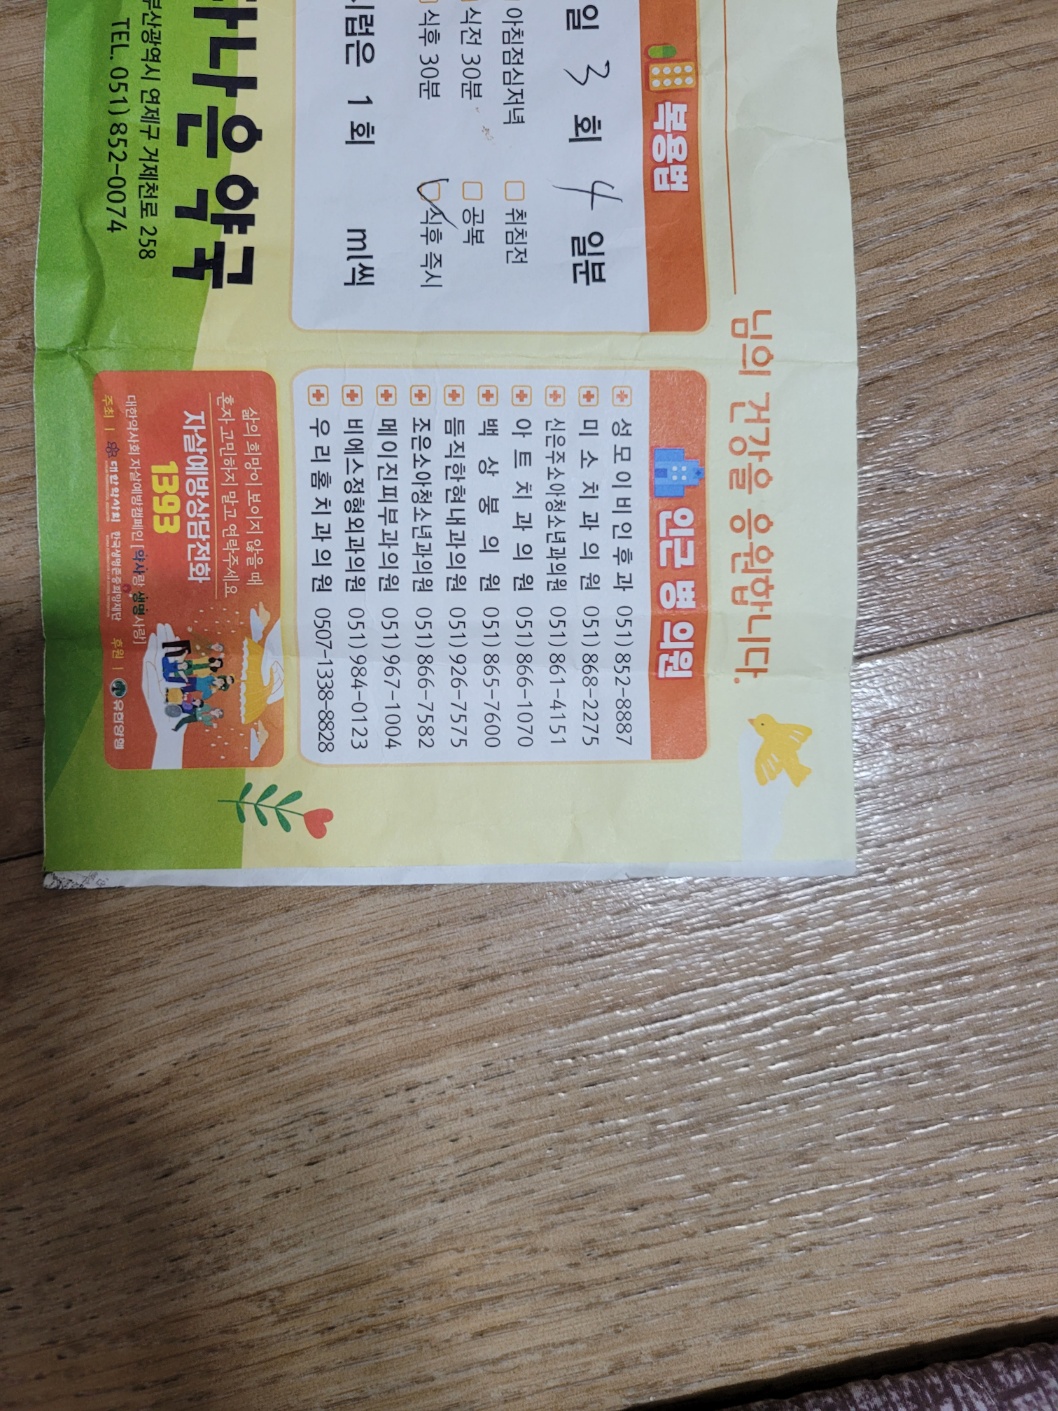 님의 건강을 응원합니다.
복용법
일 3 회 4 일분
아침점심저녁 취침전
식전 30분 공복
식후 30분 식후 즉시
시럽은 1 회 ml씩
인근 병 의원
성모이비인후과 051) 852-8887
미소치과의원 051) 868-2275
신은주소아청소년과의원 051) 861-4151
아트치과의원 051) 866-1070
백상붕의원 051) 865-7600
듬직한현내과의원 051) 926-7575
조은소아청소년과의원 051) 866-7582
메이진피부과의원 051) 967-1004
비에스정형외과의원 051) 984-0123
우리홈치과의원 0507-1338-8828
나은약국
부산광역시 연제구 거제천로 258
TEL. 051) 852-0074
삶의 희망이 보이지 않을 때
혼자 고민하지 말고 연락주세요
자살예방상담전화
1393
대한약사회 자살예방캠페인 [약사랑 생명사랑]
주최 | 대한약사회 한국생명존중희망재단 후원 | 유한양행